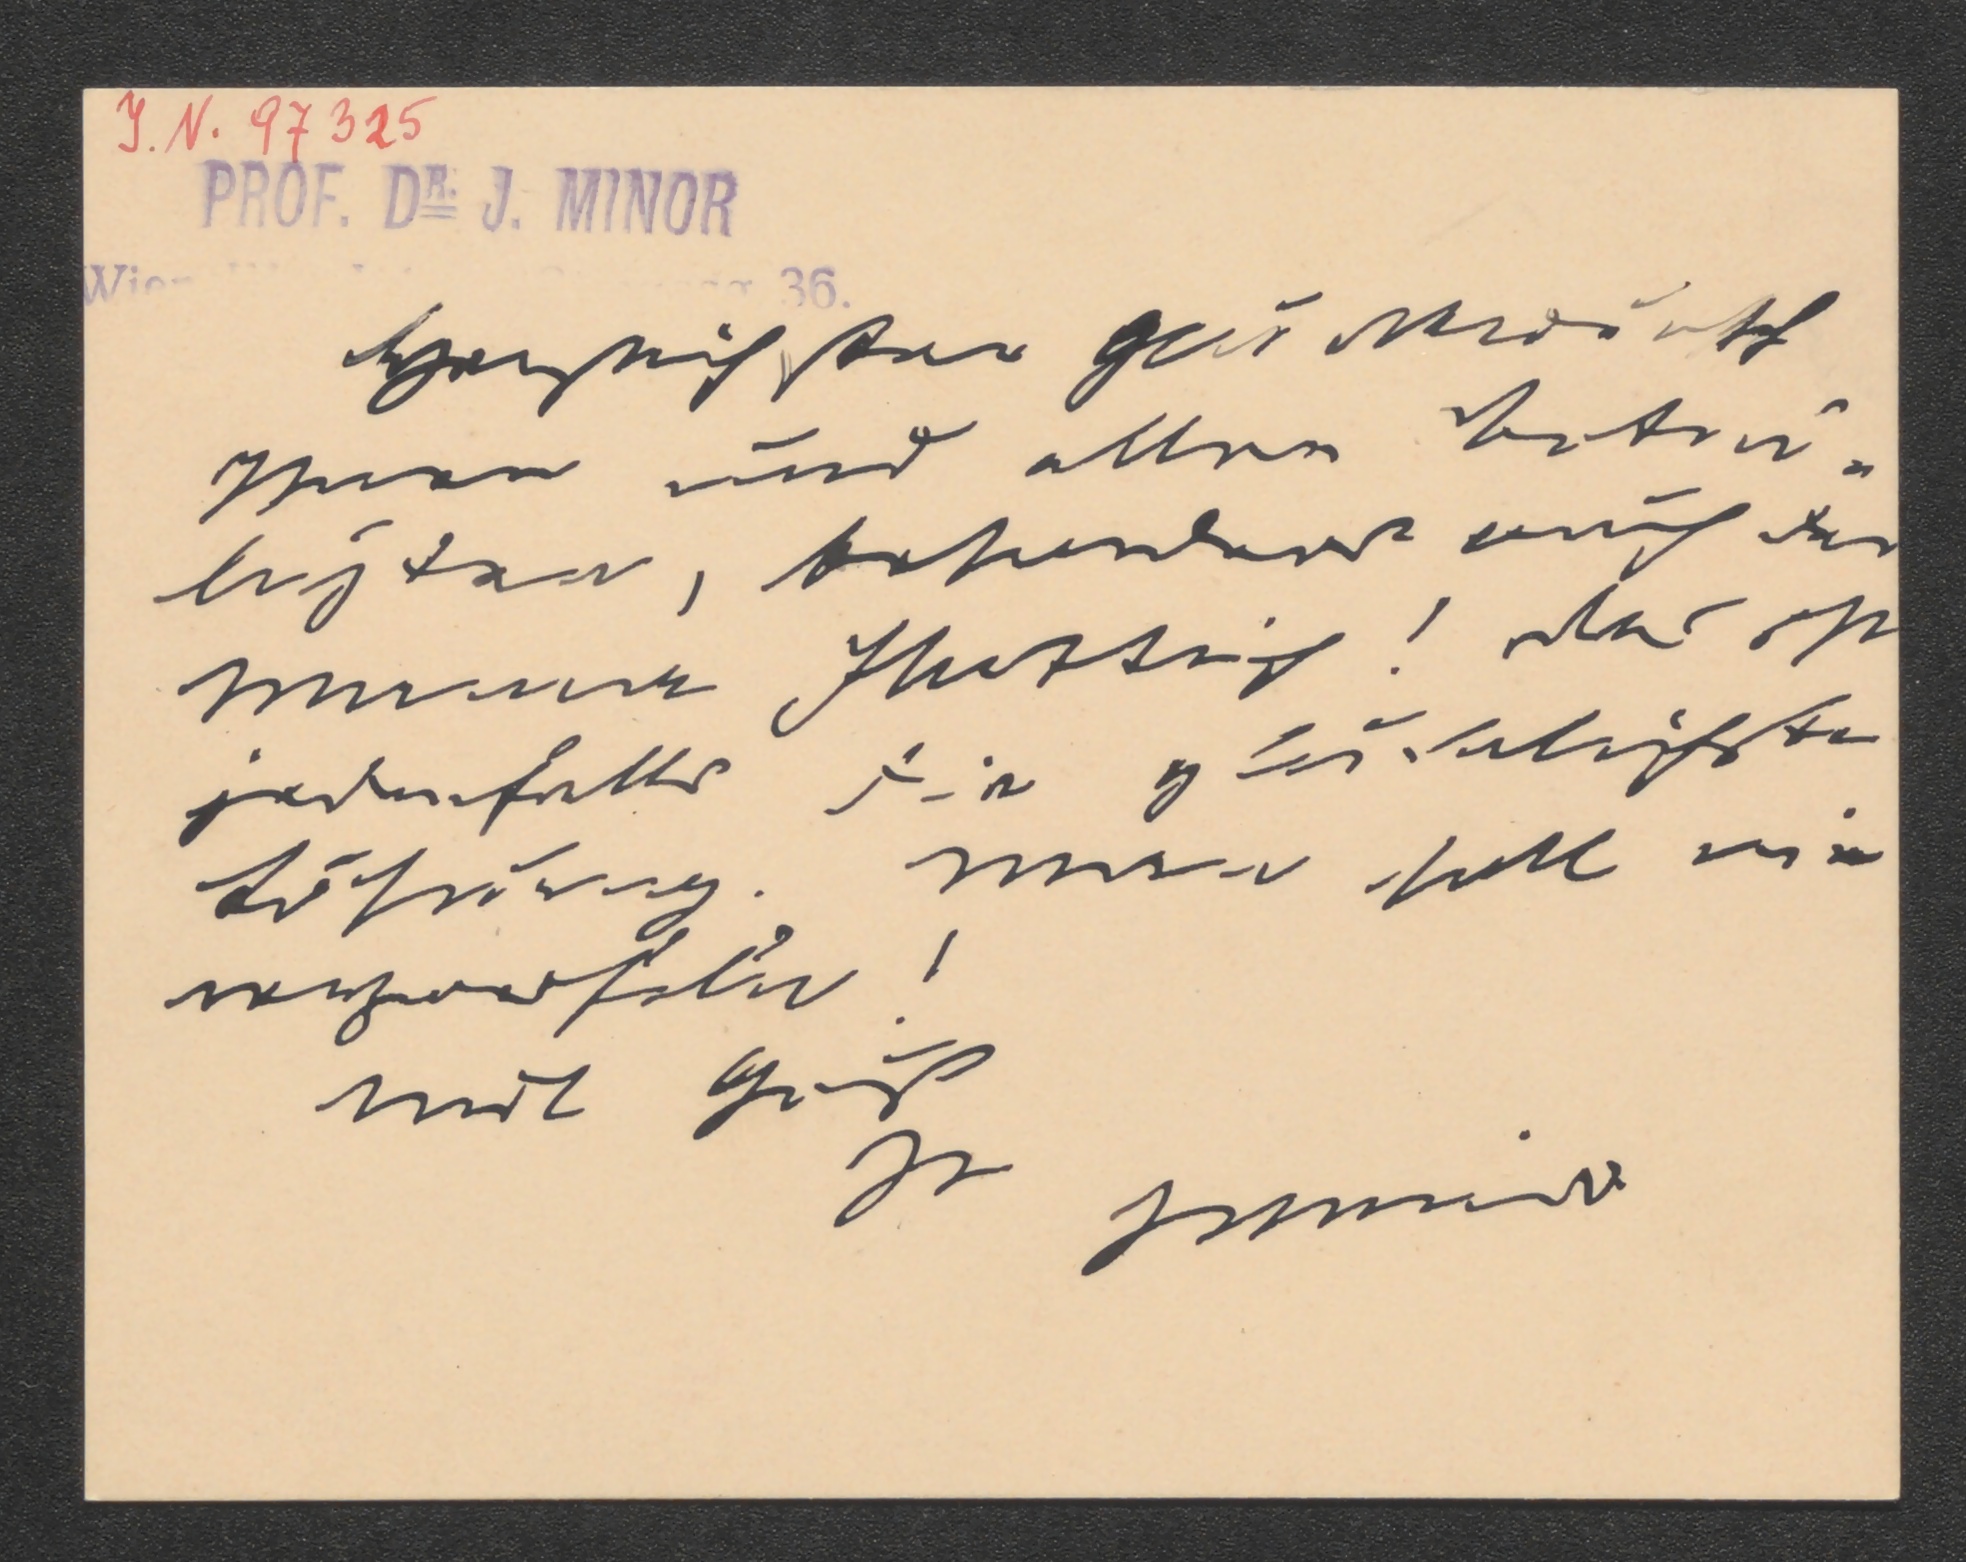 J. N. 97325
PROF. DR. J. MINOR
Wien 36.
Herzlichsten Glückwunsch
Ihnen und allen Betei-
ligten, besonders auch der
! Das ist
jedenfalls die glücklichste
Lösung. Man soll nie
verzweifeln!
Mit Gruß
Ihr JMinor